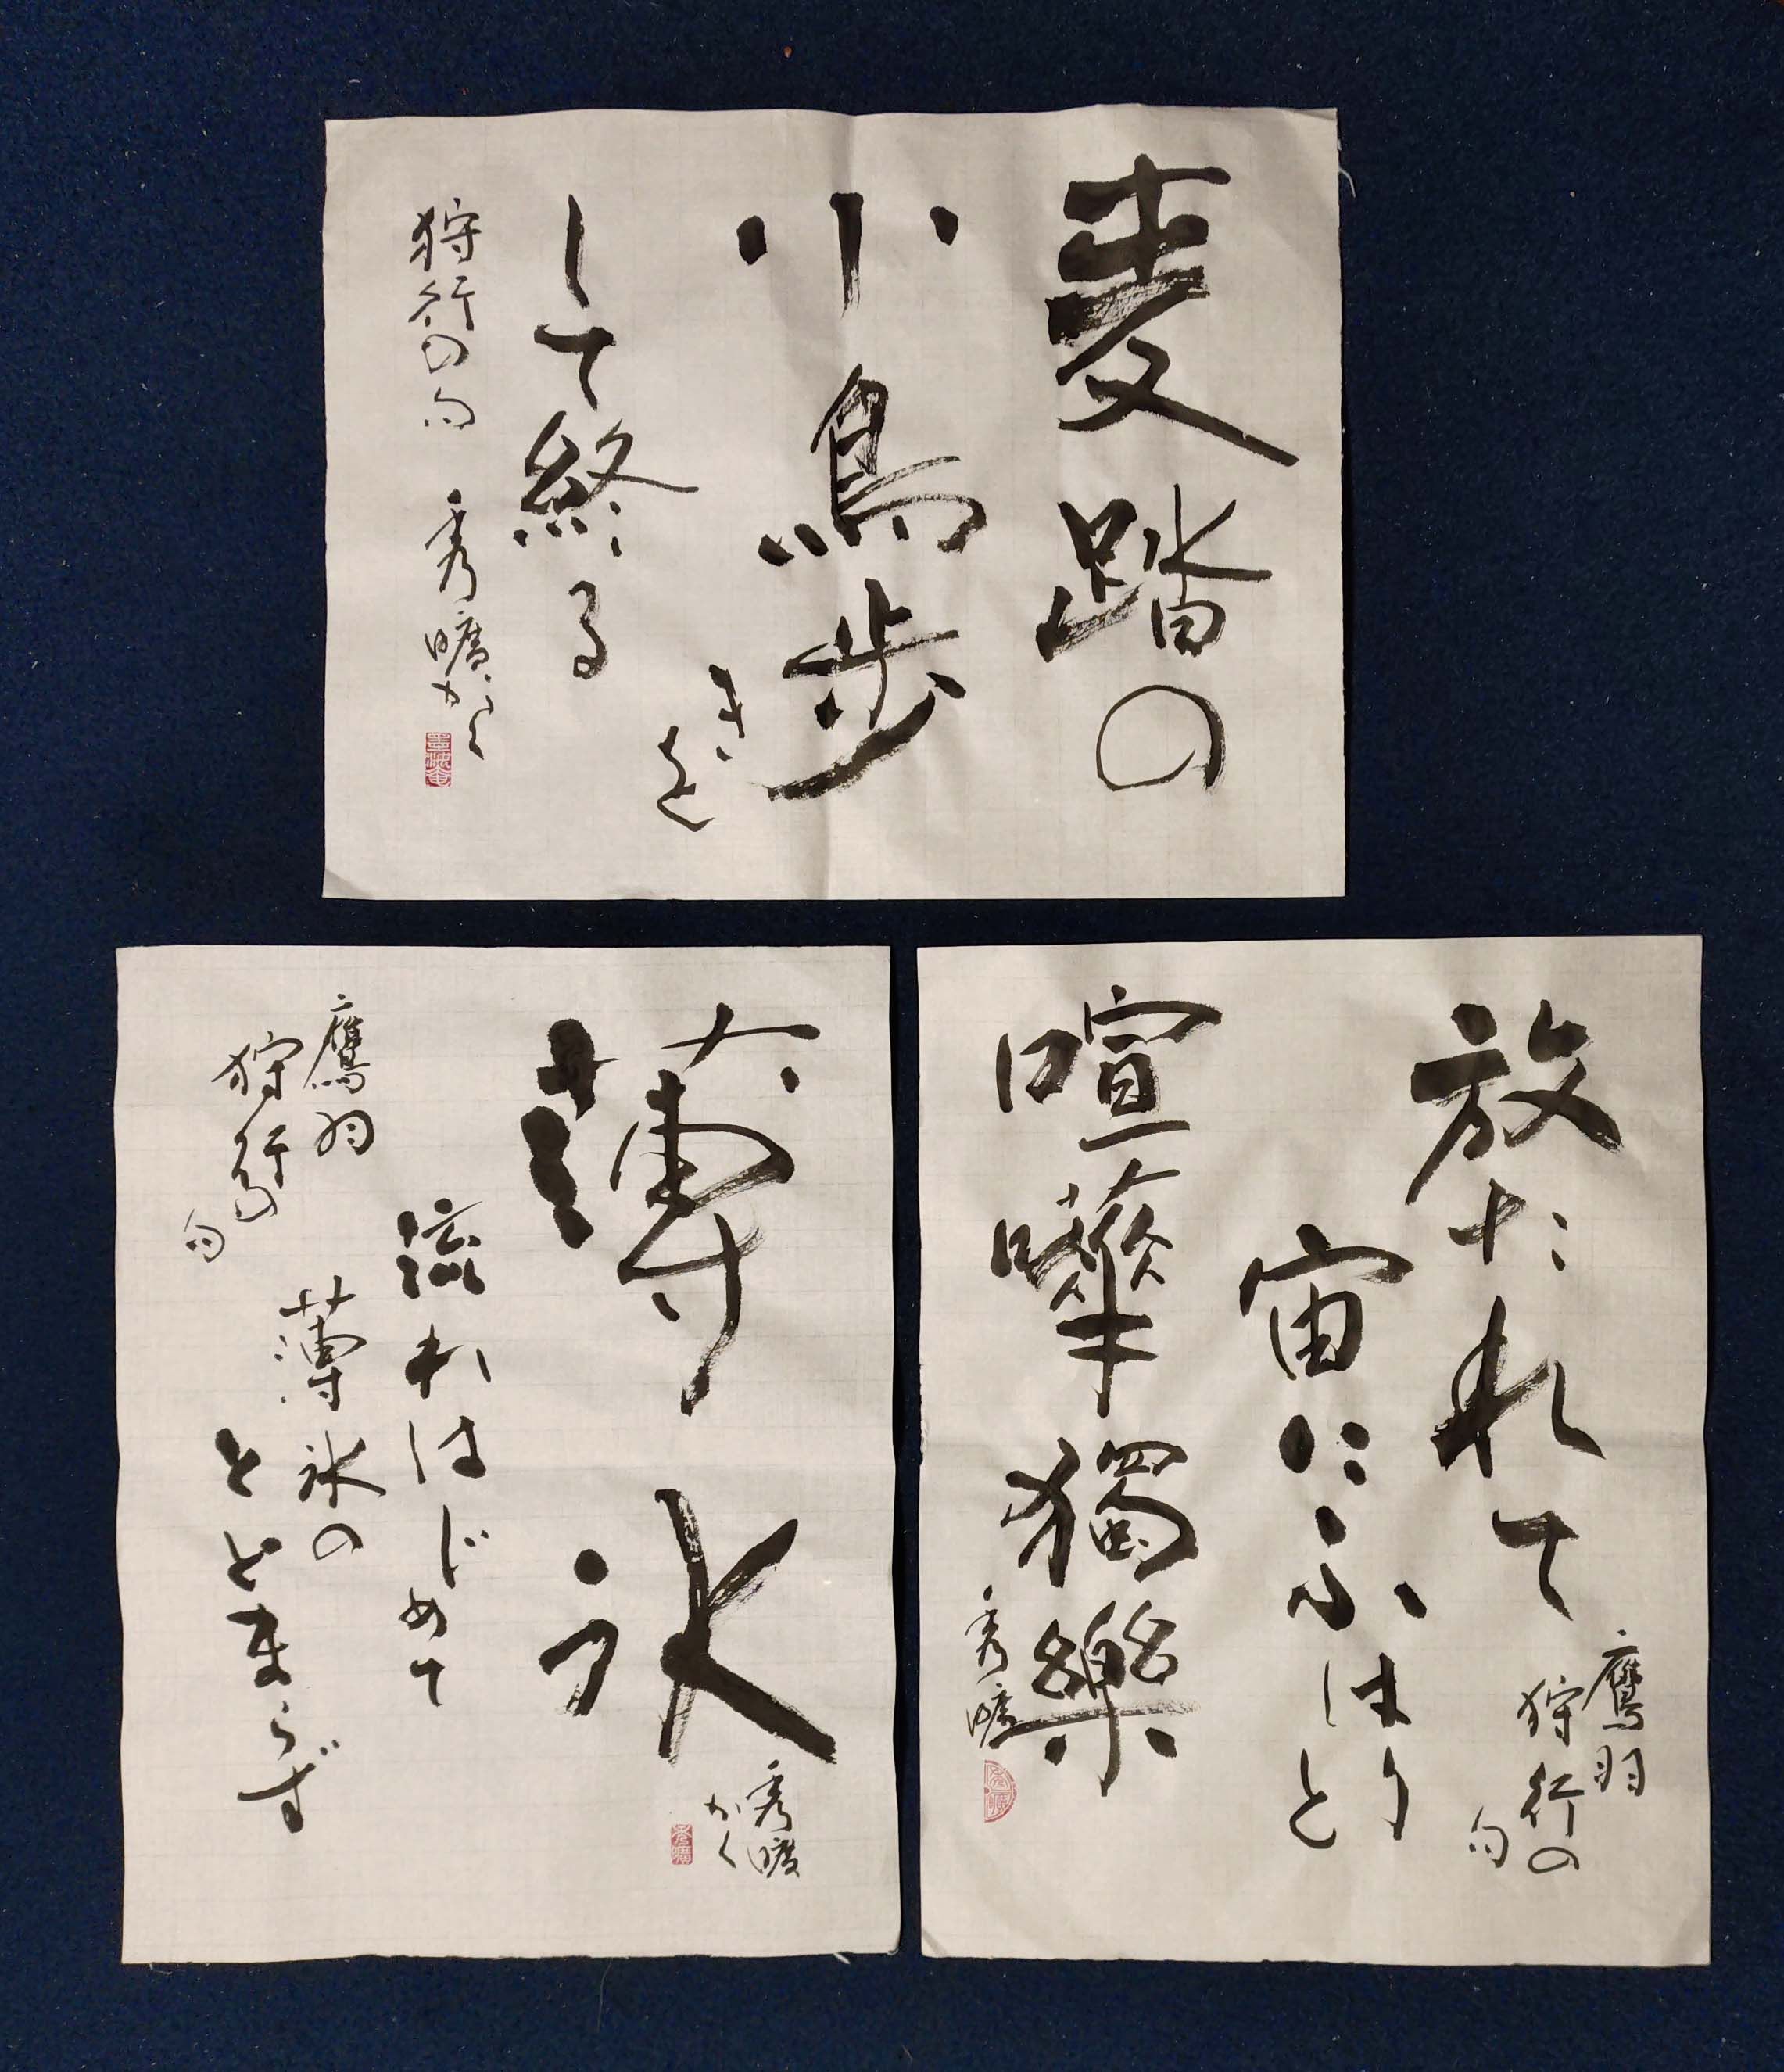 麦踏の
小鳥歩
きを
して終る
狩行の句 秀曠かく
放たれて
宙にふはりと
喧嘩獨樂
鷹羽
狩行の
句
秀曠
薄
氷
流れはじめて
薄氷の
とどまらず
鷹羽
狩行の
句
秀曠
かく